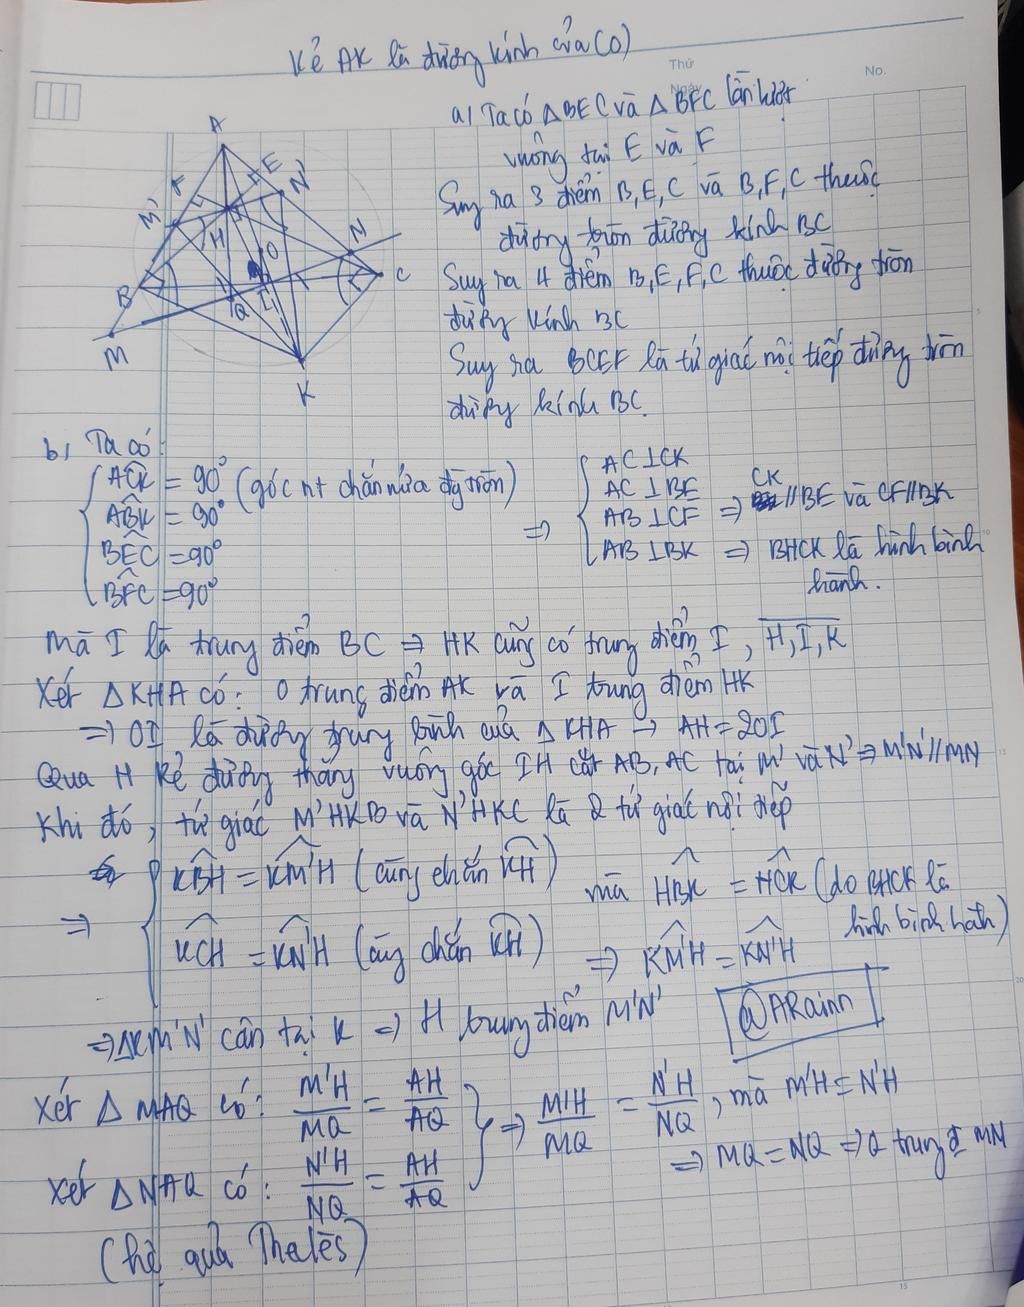 Kẻ AK là đường kính của (O)
Thứ
No.
a) Ta có △BEC và △BFC lần lượt
vuông tại E và F
Suy ra 3 điểm B,E,C và B,F,C thuộc
đường tròn đường kính BC
Suy ra 4 điểm B,E,F,C thuộc đường tròn
đường kính BC
Suy ra BCEF là tứ giác nội tiếp đường tròn
đường kính BC.
A
E
N'
F
M'
H
O
N
B
C
Q
I
M
K
b) Ta có:
ACK = 90° (góc nt chắn nửa đg tròn)
ABK = 90°
BEC = 90°
BFC = 90°
⇒
AC⊥CK
AC⊥BE
AB⊥CF ⇒ CK//BE và CF//BK
AB⊥BK ⇒ BHCK là hình bình
hành.
Mà I là trung điểm BC ⇒ HK cũng có trung điểm I, H,I,K
Xét △KHA có: O trung điểm AK và I trung điểm HK
⇒ OI là đường trung bình của △KHA → AH=2OI
Qua H kẻ đường thẳng vuông góc IH cắt AB, AC tại M' và N' ⇒ M'N'//MN
Khi đó, tứ giác M'HKB và N'HKC là 2 tứ giác nội tiếp
⇒
KBH = KM'H (cùng chắn KH)
KCH = KN'H (cùng chắn KH)
mà HBK = HCK (do BHCK là
hình bình hành)
⇒ KM'H = KN'H
⇒ △KM'N' cân tại K ⇒ H trung điểm M'N'
@ARainn
Xét △MAQ có: M'H/MQ = AH/AQ
Xét △NAQ có: N'H/NQ = AH/AQ
⇒ M'H/MQ = N'H/NQ, mà M'H = N'H
⇒ MQ = NQ ⇒ Q trung đ MN
(hệ quả Thalès)